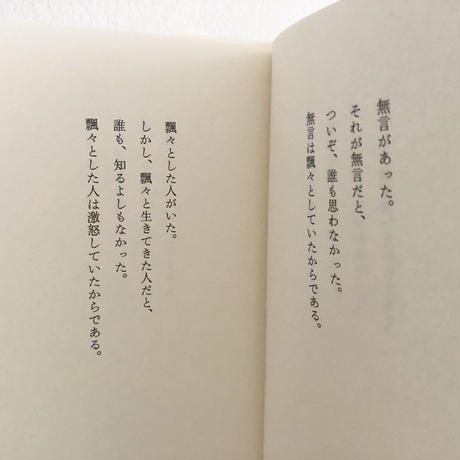 無言があった。
それが無言だと、
ついぞ、誰も思わなかった。
無言は飄々としていたからである。
飄々とした人がいた。
しかし、飄々と生きてきた人だと、
誰も、知るよしもなかった。
飄々とした人は激怒していたからである。